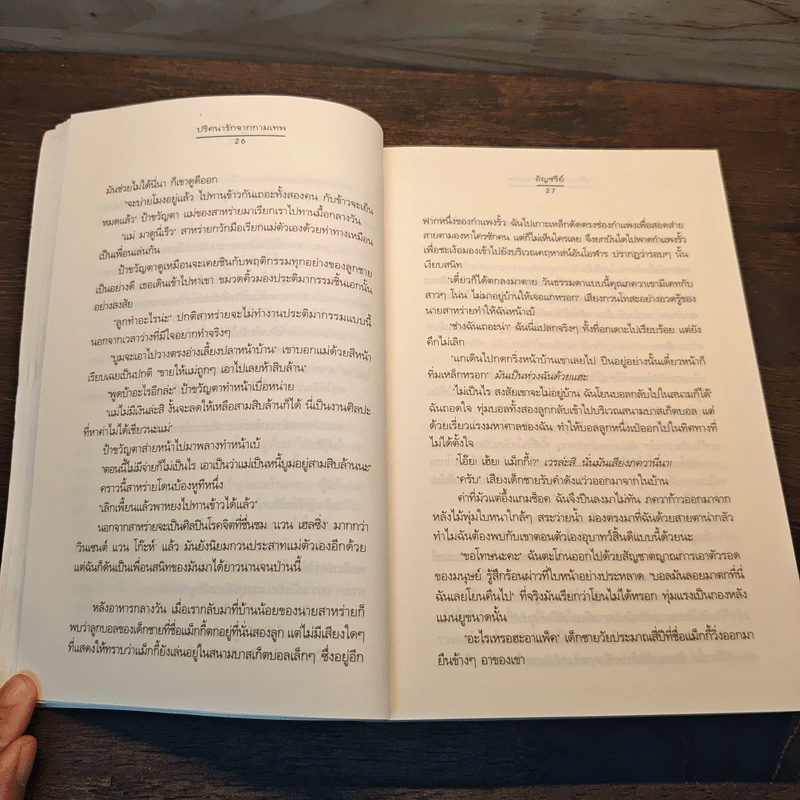 ปริศนารักจากกามเทพ
26
มันช่วยไม่ได้นี่นา ก็เขาดูดีออก
"จะบ่ายโมงอยู่แล้ว ไปทานข้าวกันเถอะทั้งสองคน กับข้าวจะเย็น
หมดแล้ว" ป้าขวัญตา แม่ของสาหร่ายมาเรียกเราไปทานมื้อกลางวัน
"แม่ มาดูนี่เร็ว" สาหร่ายกวักมือเรียกแม่ตัวเองด้วยท่าทางเหมือน
เป็นเพื่อนเล่นกัน
ป้าขวัญตาดูเหมือนจะเคยชินกับพฤติกรรมทุกอย่างของลูกชาย
เป็นอย่างดี เธอเดินเข้าไปหาเขา ขมวดคิ้วมองประติมากรรมชิ้นเอกนั้น
อย่างสงสัย
"ลูกทำอะไรน่ะ" ปกติสาหร่ายจะไม่ทำงานประติมากรรมแบบนี้
นอกจากเวลาว่างที่มีใจอยากทำจริงๆ
"บูมจะเอาไปวางตรงอ่างเลี้ยงปลาหน้าบ้าน" เขาบอกแม่ด้วยสีหน้า
เรียบเฉยเป็นปกติ "ขายให้แม่ถูกๆ เอาไปเลยห้าสิบล้าน"
"พูดบ้าอะไรอีกล่ะ" ป้าขวัญตาทำหน้าเบื่อหน่าย
"แม่ไม่มีเงินล่ะสิ งั้นจะลดให้เหลือสามสิบล้านก็ได้ นี่เป็นงานศิลปะ
ที่หาค่าไม่ได้เชียวนะแม่"
ป้าขวัญตาส่ายหน้าไปมาพลางทำหน้าเบ้
"ตอนนี้ไม่มีจ่ายก็ไม่เป็นไร เอาเป็นว่าแม่เป็นหนี้บูมอยู่สามสิบล้านนะ"
คราวนี้สาหร่ายโดนบ้องหูทีหนึ่ง
"เลิกเพี้ยนแล้วพาหยงไปทานข้าวได้แล้ว"
นอกจากสาหร่ายจะเป็นศิลปินโรคจิตที่ชื่นชม 'แวน เฮลซิ่ง' มากกว่า
วินเซนต์ แวน โก๊ะห์ แล้ว มันยังนิยมกวนประสาทแม่ตัวเองอีกด้วย
แต่ฉันก็ดันเป็นเพื่อนสนิทของมันมาได้ยาวนานจนป่านนี้
หลังอาหารกลางวัน เมื่อเรากลับมาที่บ้านน้อยของนายสาหร่ายก็
พบว่าลูกบอลของเด็กชายที่ชื่อแม็กกี้ตกอยู่ที่นั่นสองลูก แต่ไม่มีเสียงใดๆ
ที่แสดงให้ทราบว่าแม็กกี้ยังเล่นอยู่ในสนามบาสเก็ตบอลเล็กๆ ซึ่งอยู่อีก
ธัญชรีย์
27
ฟากหนึ่งของกำแพงรั้ว ฉันไปเกาะเหล็กดัดตรงช่องกำแพงเพื่อสอดส่าย
สายตามองหาใครซักคน แต่ก็ไม่เห็นใครเลย จึงยกบันไดไปพาดกำแพงรั้ว
เพื่อชะเง้อมองเข้าไปยังบริเวณคฤหาสน์อันโอฬาร ปรากฏว่ารอบๆ นั้น
เงียบสนิท
"เดี๋ยวก็ได้ตกลงมาตาย วันธรรมดาแบบนี้คุณภควาเขามีเดทกับ
สาวๆ โน่น ไม่มาอยู่บ้านให้เจอแกหรอก" เสียงกวนโทสะอย่างอวดรู้ของ
นายสาหร่ายทำให้ฉันหน้าเบ้
"ช่างฉันเถอะน่า" ฉันนี่แปลกจริงๆ ทั้งที่อกเดาะไปเรียบร้อย แต่ยัง
คึกไม่เลิก
"แกเดินไปกดกริ่งหน้าบ้านเขาเลยไป ปีนอยู่อย่างนั้นเดี๋ยวหน้าก็
ทิ่มเหล็กหรอก" มันเป็นห่วงฉันด้วยแฮะ
"ไม่เป็นไร สงสัยเขาจะไม่อยู่บ้าน ฉันโยนบอลกลับไปในสนามก็ได้"
ฉันถอดใจ ทุ่มบอลทั้งสองลูกกลับเข้าไปบริเวณสนามบาสเก็ตบอล แต่
ด้วยเรี่ยวแรงมหาศาลของฉัน ทำให้บอลลูกหนึ่งเป๋ออกไปในทิศทางที่
ไม่ได้ตั้งใจ
"โอ๊ย! เฮ้ย! แม็กกี้!" เวรล่ะสิ...นั่นมันเสียงภควานี่นา!
"ครับ" เสียงเด็กชายรับคำดังแว่วออกมาจากในบ้าน
ค่าที่มัวแต่อึ้งแกมช็อค ฉันจึงปีนลงมาไม่ทัน ภควาก้าวออกมาจาก
หลังไม้พุ่มใบหนาใกล้ๆ สระว่ายน้ำ มองตรงมาที่ฉันด้วยสายตาน่ากลัว
ทำไมฉันต้องพบกับเขาตอนตัวเองอุบาทว์สิ้นดีแบบนี้ด้วยนะ
"ขอโทษนะคะ" ฉันตะโกนออกไปด้วยสัญชาตญาณการเอาตัวรอด
ของมนุษย์ รู้สึกร้อนผ่าวที่ใบหน้าอย่างประหลาด "บอลมันลอยมาตกที่นี่
ฉันเลยโยนคืนไป" ที่จริงมันเรียกว่าโยนไม่ได้หรอก ทุ่มแรงเป็นกองหลัง
แมนยูขนาดนั้น
"อะไรเหรอฮะอาแพ็ค" เด็กชายวัยประมาณสี่ปีที่ชื่อแม็กกี้วิ่งออกมา
ยืนข้างๆ อาของเขา